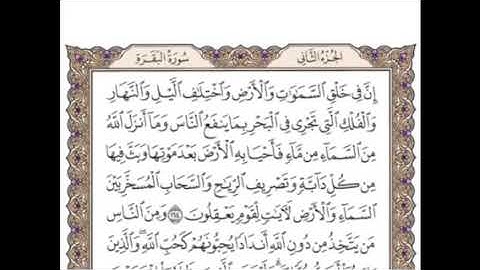 الجُزْءُ الثَّانِي
سُورَةُ البَقَرَةِ
إِنَّ فِي خَلْقِ السَّمَٰوَٰتِ وَالْأَرْضِ وَاخْتِلَٰفِ الَّيْلِ وَالنَّهَارِ
وَالْفُلْكِ الَّتِي تَجْرِي فِي الْبَحْرِ بِمَا يَنفَعُ النَّاسَ وَمَا أَنزَلَ اللَّهُ
مِنَ السَّمَاءِ مِن مَّاءٍ فَأَحْيَا بِهِ الْأَرْضَ بَعْدَ مَوْتِهَا وَبَثَّ فِيهَا
مِن كُلِّ دَابَّةٍ وَتَصْرِيفِ الرِّيَٰحِ وَالسَّحَابِ الْمُسَخَّرِ بَيْنَ
السَّمَاءِ وَالْأَرْضِ لَءَايَٰتٍ لِّقَوْمٍ يَعْقِلُونَ ١٦٤ وَمِنَ النَّاسِ
مَن يَتَّخِذُ مِن دُونِ اللَّهِ أَندَادًا يُحِبُّونَهُمْ كَحُبِّ اللَّهِ وَالَّذِينَ